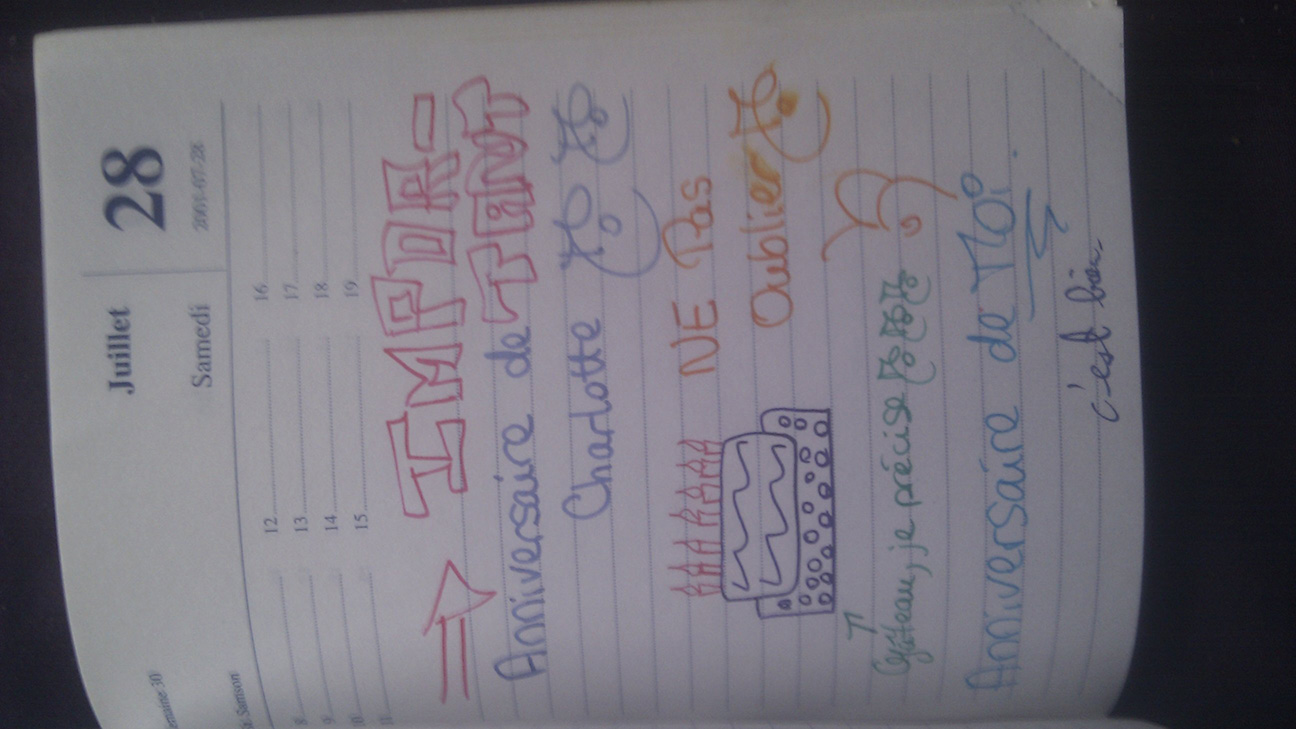 Juillet 28
Samedi 2001-07-28
Semaine 30
St. Samson
8 12 16
9 13 17
10 14 18
11 15 19
⇒ IMPOR-
TANT
Anniversaire de
Charlotte
NE Pas
Oublier
↑
Gâteau, je précise
Anniversaire de Moi.
c'est bien.